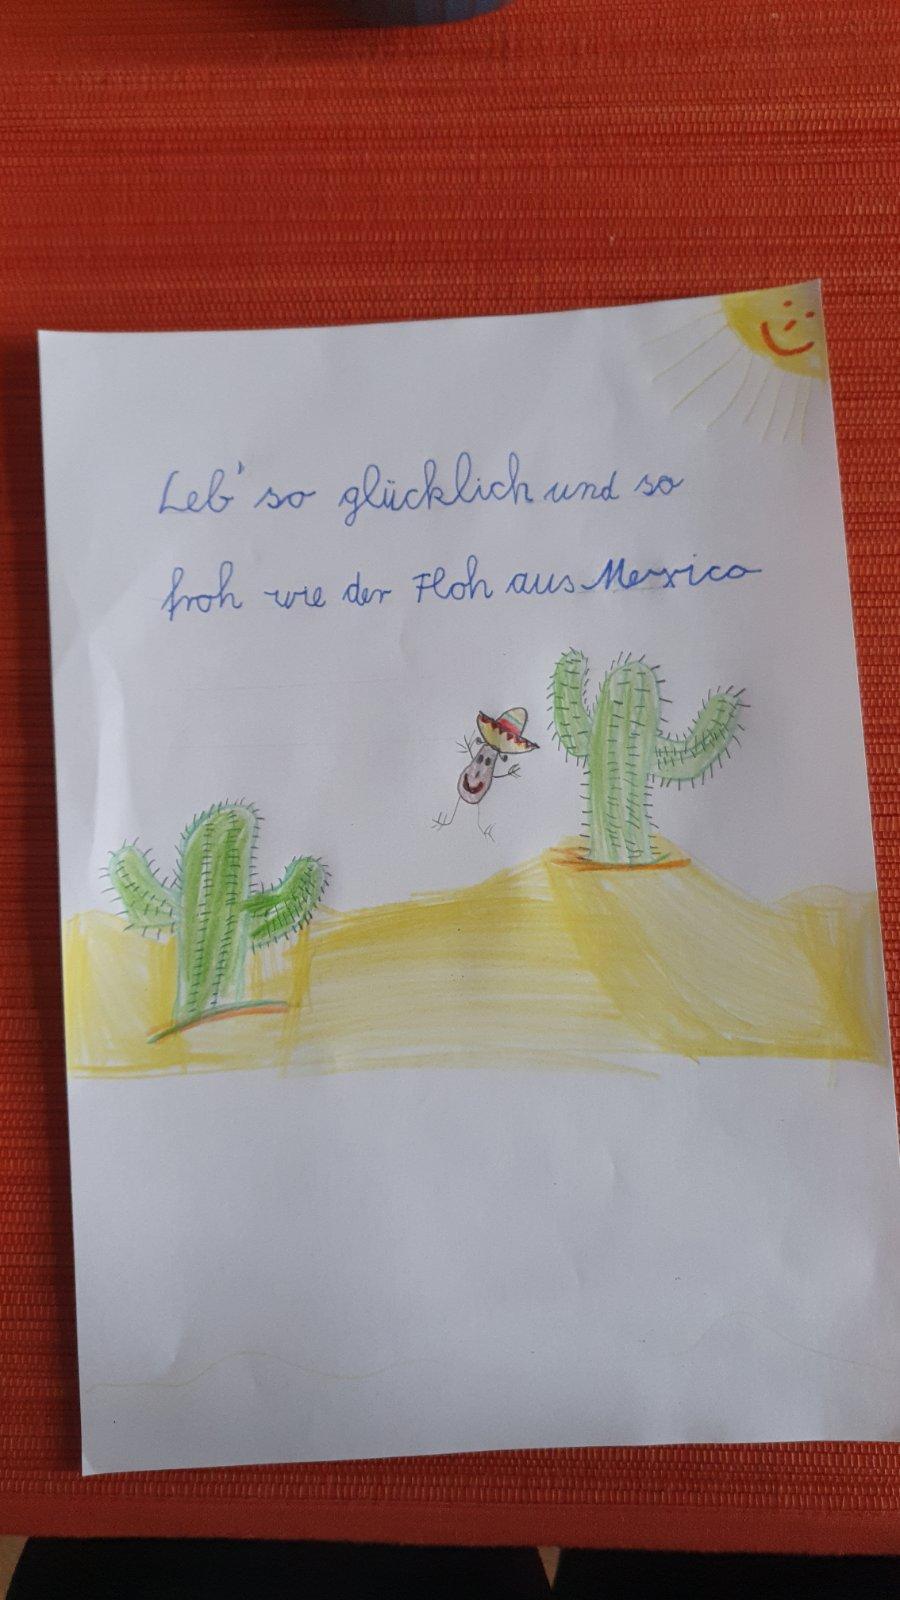 Leb' so glücklich und so
froh wie der Floh aus Mexico